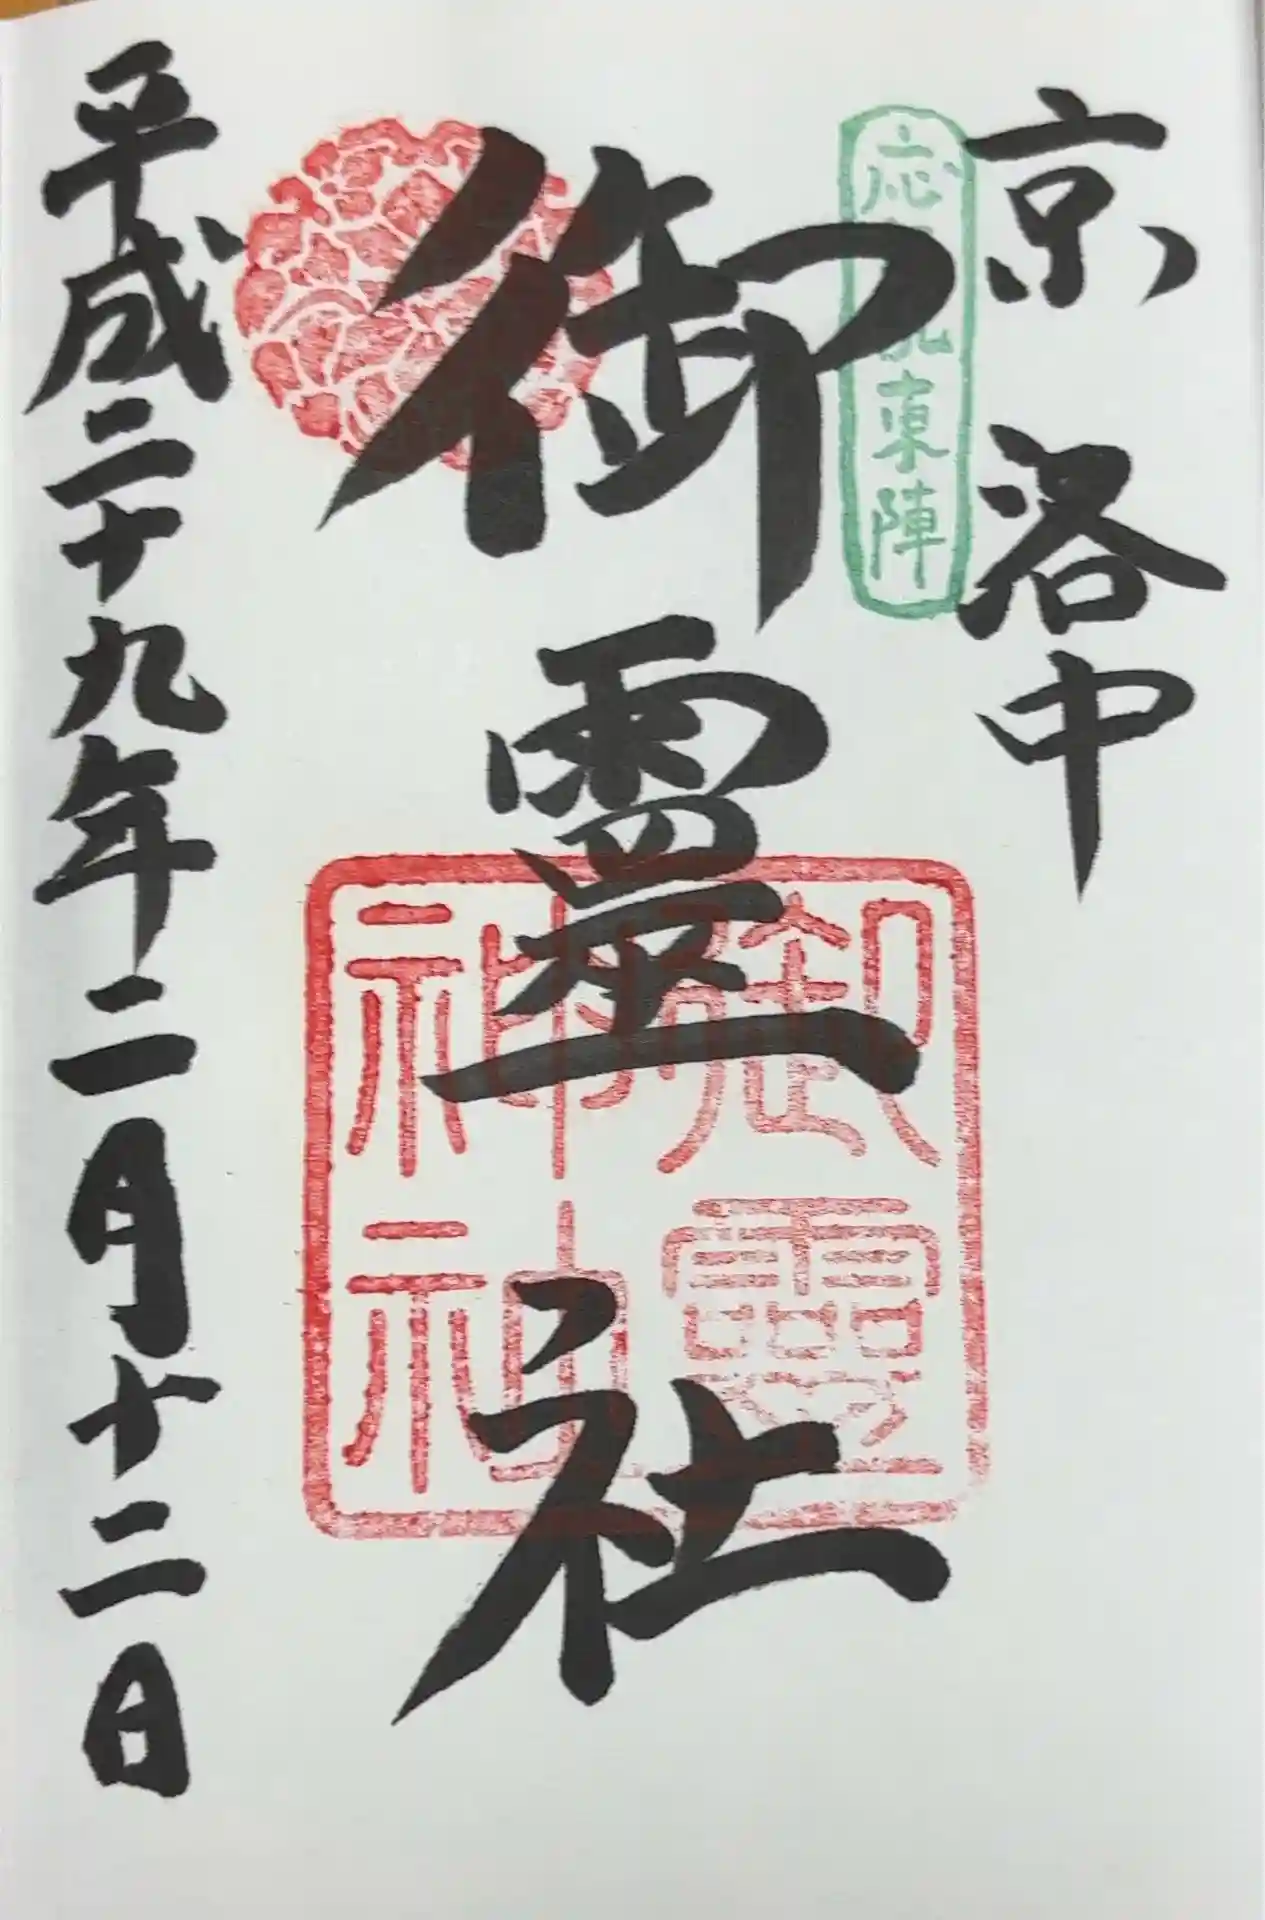 京 洛中
応仁の乱東陣
御靈社
御靈
神社
平成二十九年二月十二日